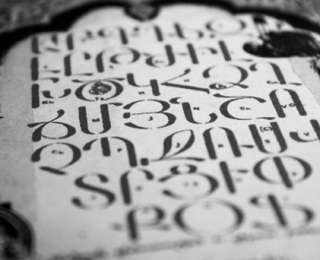 ԱԲԳԴԵԶ
ԷԸԹԺԻԼ
ԽԾԿՀՁՂ
ՃՄՅՆՇՈ
ՉՊՋՌՍՎ
ՏՐՑՒՓ
ՔՕՖ